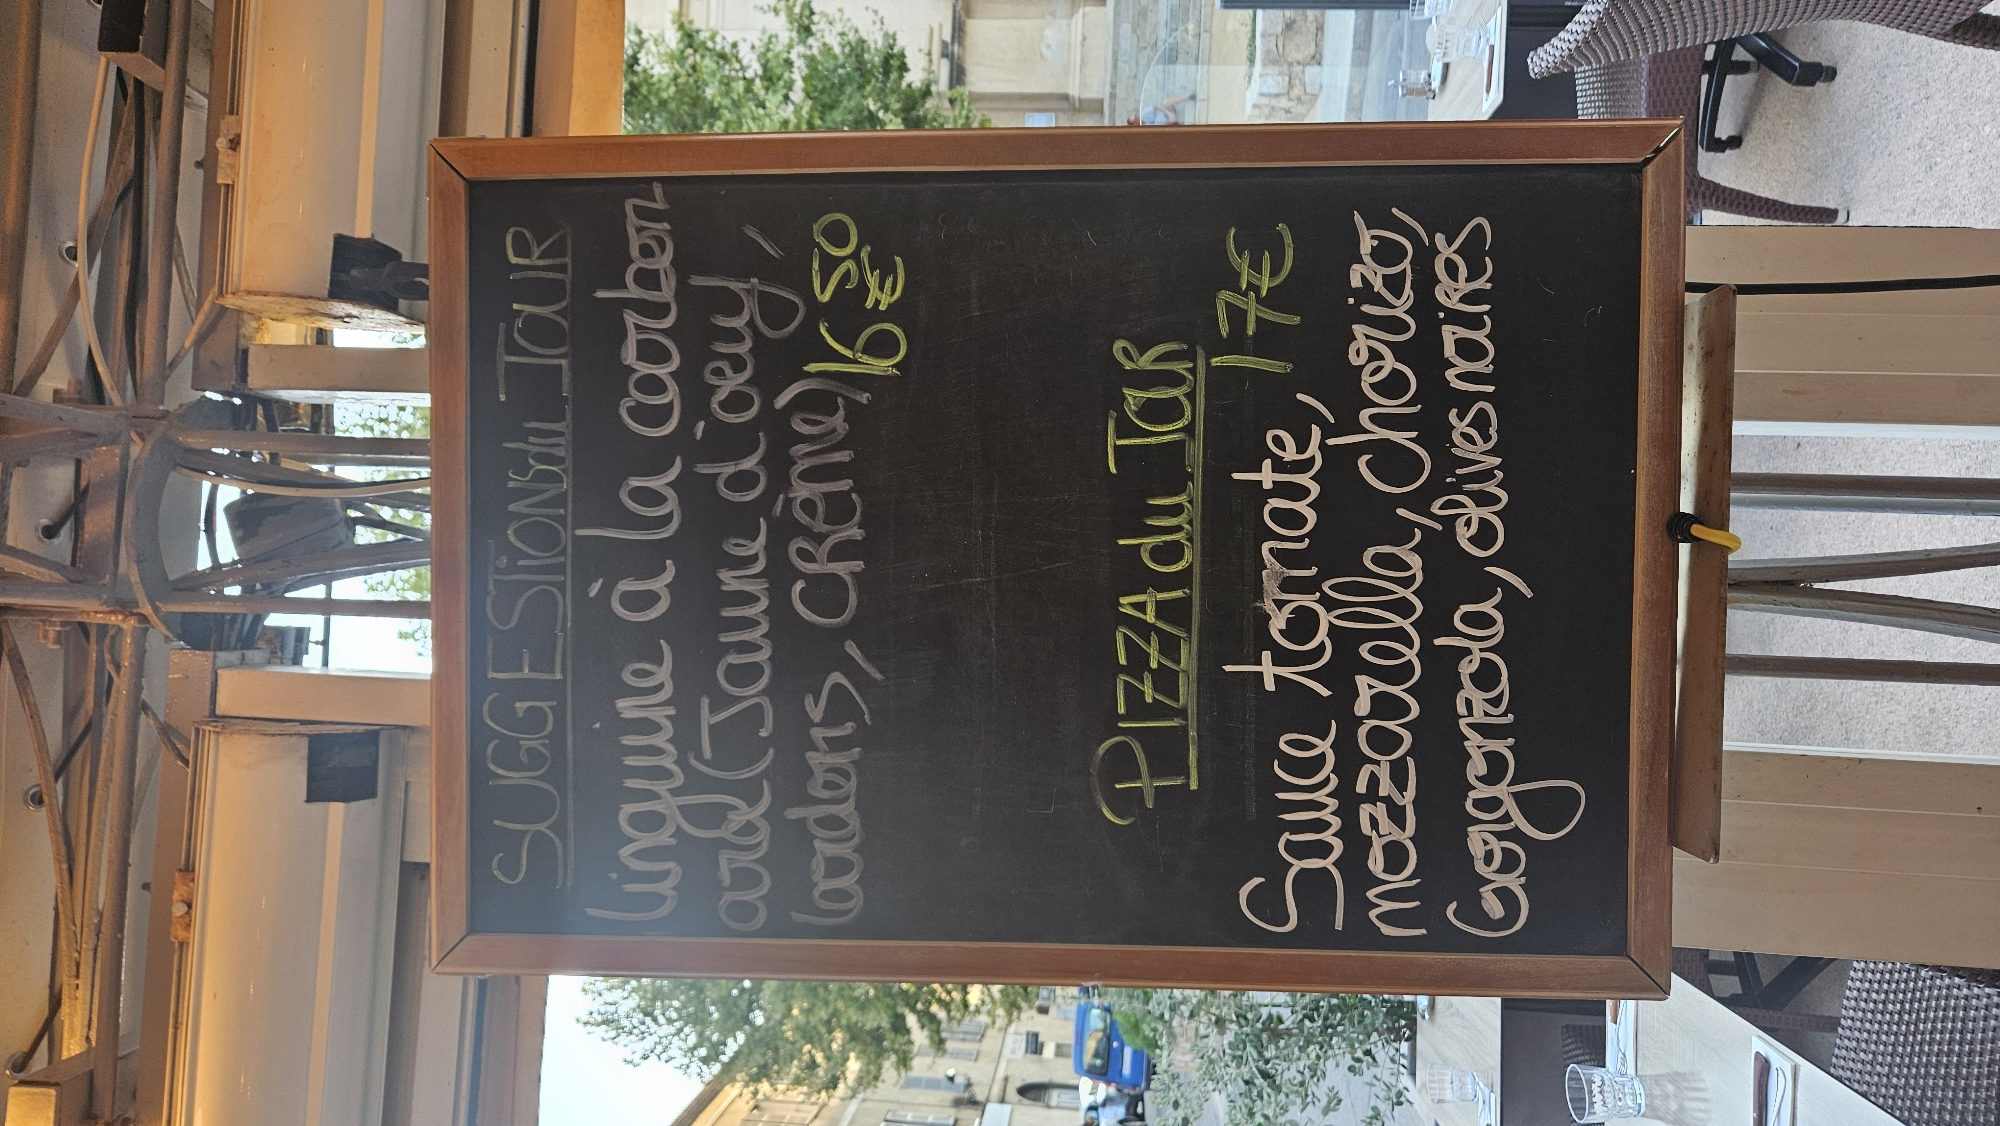 SUGGESTIONS du JOUR
Linguine à la carbon
ara (Jaune d'oeuf,
lardons, CRÈME) 16€50
PIZZA du JOUR
17€
Sauce tomate,
mozzarella, chorizo,
Gorgonzola, olives noires